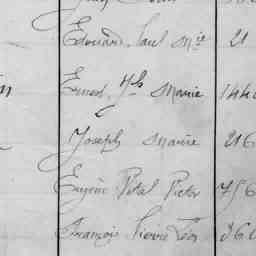 Edouard Paul Mie 21
Ernest Jh Marie 144
Joseph Marie 216
Eugène Vital Victor 756
François Pierre Léon 360